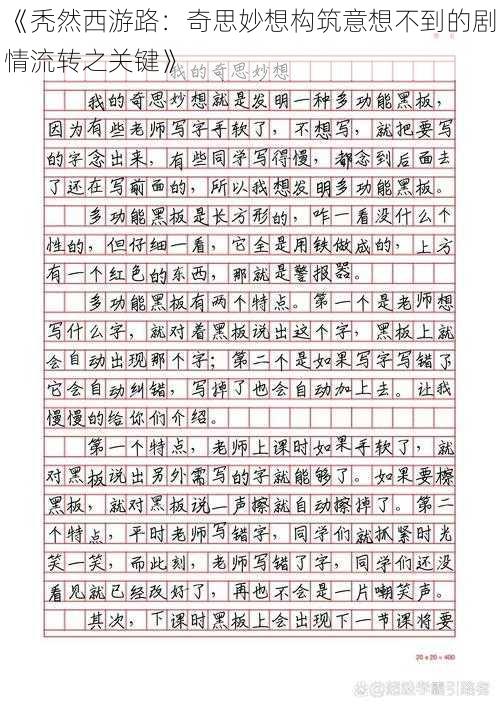 《秃然西游路：奇思妙想构筑意想不到的剧
情流转之关键》
我的奇思妙想
我的奇思妙想就是发明一种多功能黑板，
因为有些老师写字手软了，不想写，就把要写
的字念出来，有些同学写得慢，都念到后面去
了还在写前面的，所以我想发明多功能黑板。
多功能黑板是长方形的，咋一看没什么个
性的，但仔细一看，它全是用铁做成的，上方
有一个红色的东西，那就是警报器。
多功能黑板有两个特点。第一个是老师想
写什么字，就对着黑板说出这个字，黑板上就
会自动出现那个字；第二个是如果写字写错了
它会自动纠错，写掉了也会自动加上去。让我
慢慢的给你们介绍。
第一个特点，老师上课时如果手软了，就
对黑板说出另外需写的字就能够了。如果要擦
黑板，就对黑板说一声擦就自动擦掉了。第二
个特点，平时老师写错字，同学们就抓紧时光
笑一笑，而此刻，老师写错了字，同学们还没
看见就已经改好了，再也不会是一片嘲笑声。
其次，下课时黑板上会出现下一节课将要
20x20=400
@超级学霸引路者